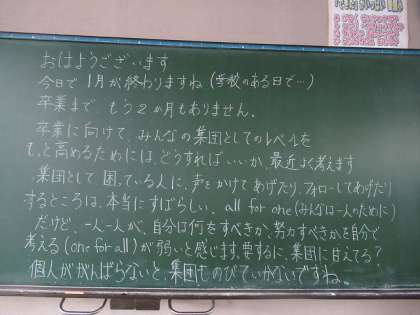 おはようございます
今日で1月が終わりますね(学校のある日で…)
卒業まで、もう2か月もありません。
卒業に向けて、みんなの集団としてのレベルを
もっと高めるためには、どうすればいいか、最近よく考えます
集団として困っている人に、声をかけてあげたり、フォローしてあげたり
するところは、本当にすばらしい。all for one(みんなは一人のために)
だけど、一人一人が、自分は何をすべきか、努力すべきかを自分で
考える(one for all)が弱いと感じます。要するに、集団に甘えてる?
個人ががんばらないと、集団ものびていかないですね。